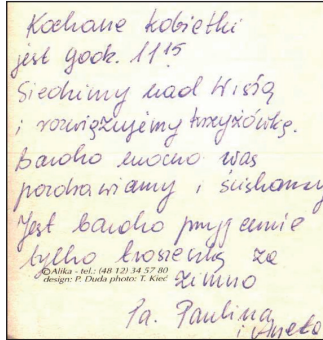 Kochane kobietki
jest godz. 11 15
Siedzimy nad Wisłą
i rozwiązujemy krzyżówkę.
bardzo mocno was
pozdrawiamy i ściskamy
Jest bardzo przyjemnie
tylko troszeczkę za
zimno
© Alika - tel.: (48 12) 34 57 80
design: P. Duda photo: T. Kieć
Pa. Paulina
i Aneta